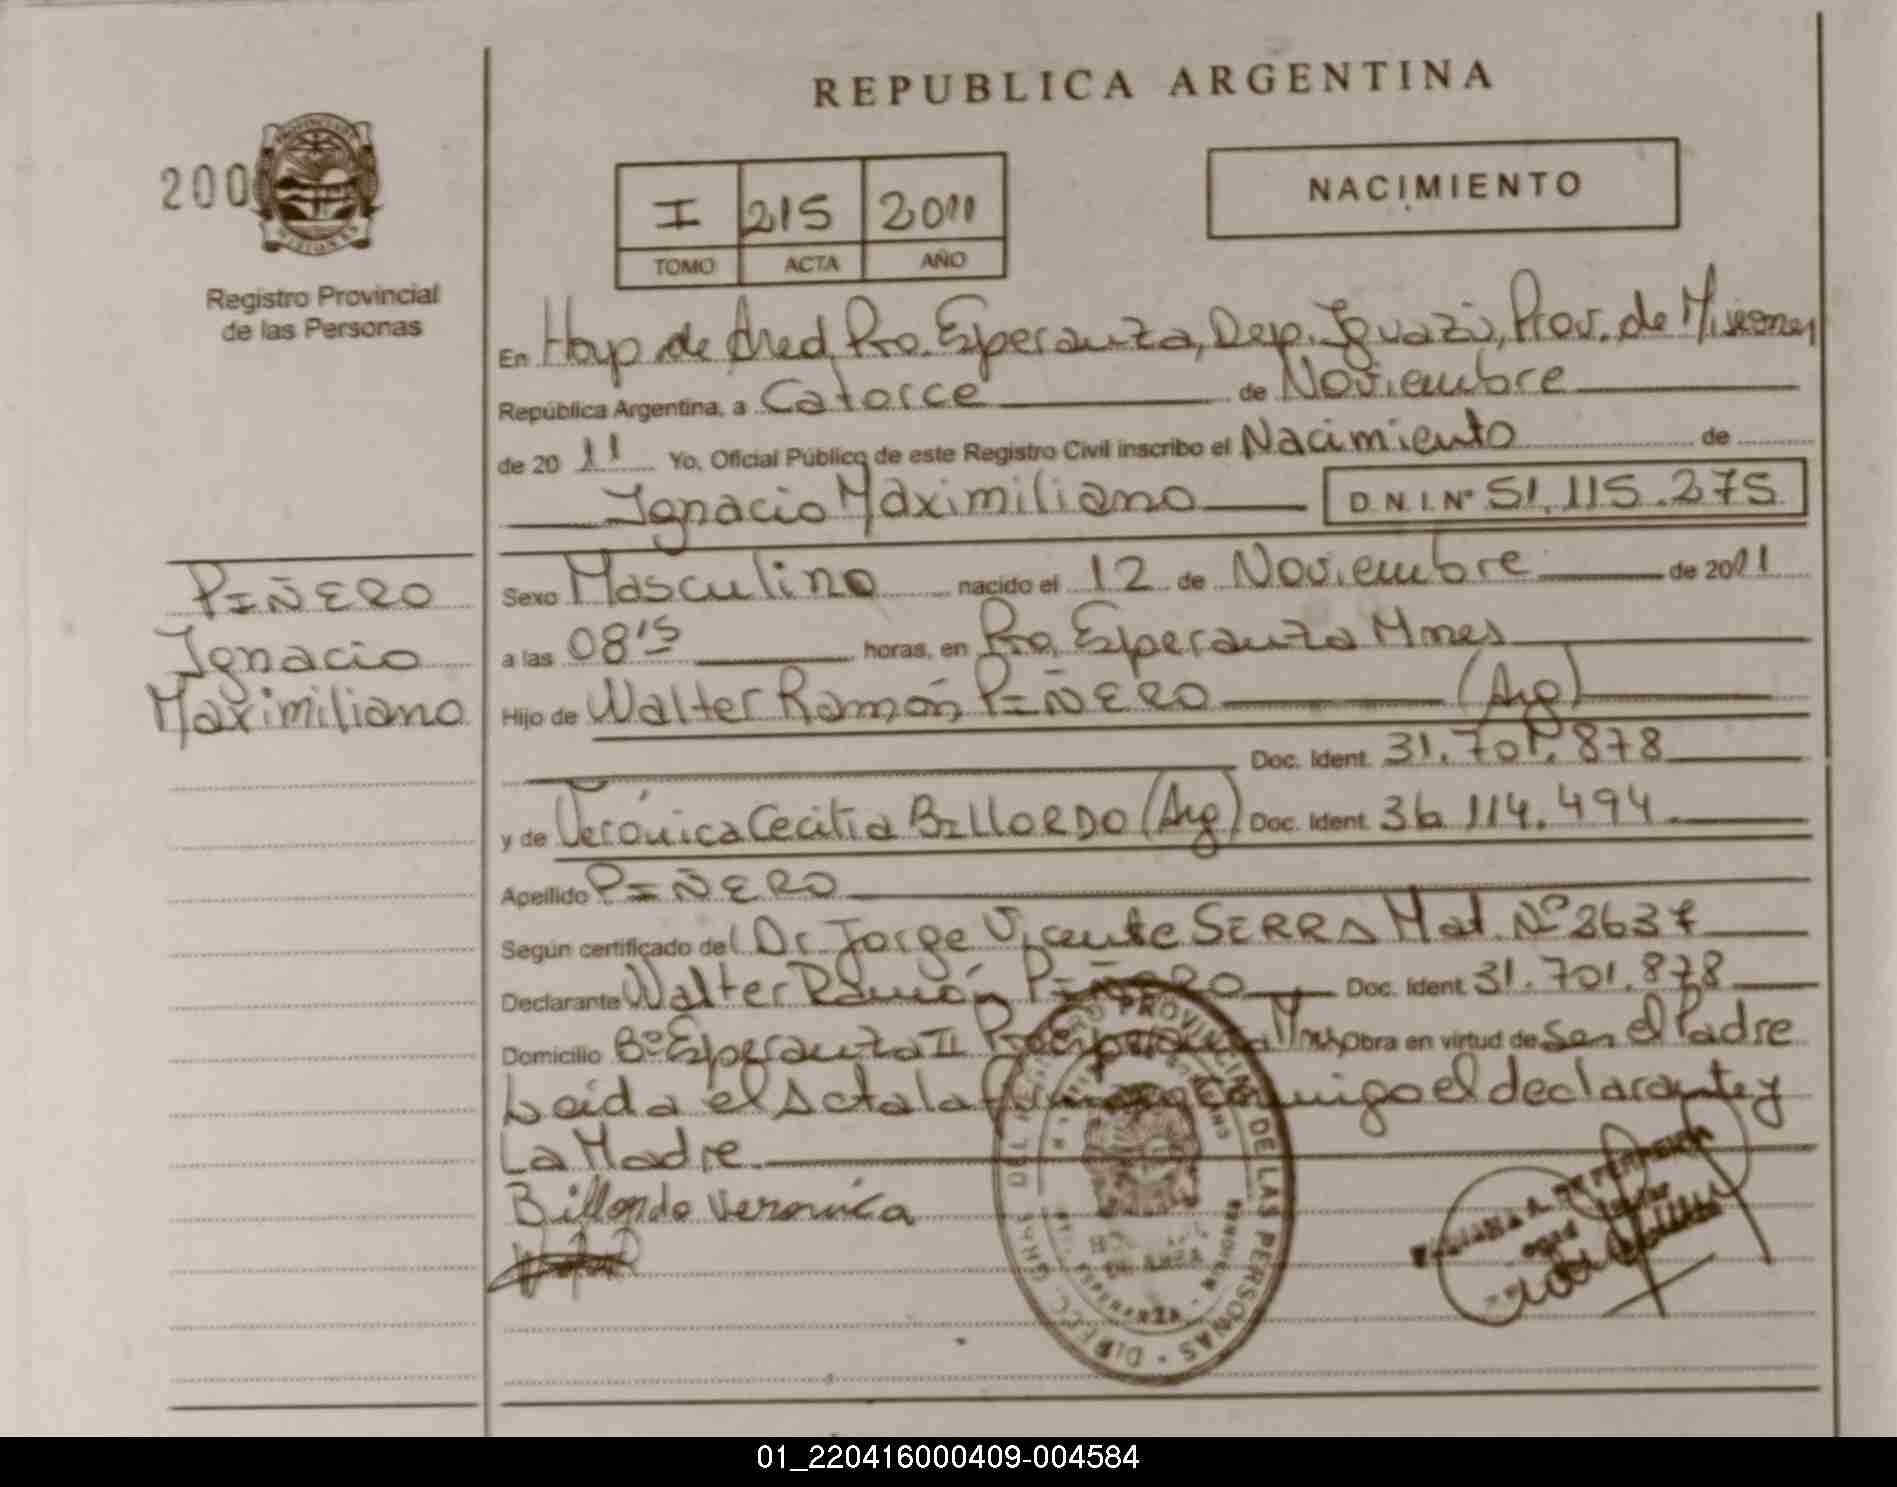 REPUBLICA ARGENTINA
200
PROVINCIA DE MISIONES
Registro Provincial
de las Personas
I 215 2011
TOMO ACTA AÑO
NACIMIENTO
En Hosp de Pto. Esperanza, Dep. Iguazú, Prov. de Misiones,
República Argentina, a Catorce de Noviembre
de 2011 Yo, Oficial Público de este Registro Civil inscribo el Nacimiento de
Ignacio Maximiliano D.N.I.Nº 51.115.275
PIÑERO
Ignacio
Maximiliano
Sexo Masculino nacido el 12 de Noviembre de 2011
a las 08'15 horas, en Pto. Esperanza Mnes
Hijo de Walter Ramón PIÑERO (Arg)
Doc. Ident. 31.701.878
y de Verónica Cecilia BILLORDO (Arg) Doc. Ident. 36.114.494
Apellido PIÑERO
Según certificado del Dr. Jorge Vicente SERRA Mat. Nº 2637
Declarante Walter Ramón PIÑERO Doc. Ident. 31.701.878
Domicilio Bº Esperanza II Pto Esperanza Mnes Obra en virtud de Ser el Padre
Leida el Acta la firma conmigo el declarante y
La Madre
Billordo Veronica
DIRECC. GRAL. DEL REGISTRO PROVINCIAL DE LAS PERSONAS
ESPERANZA
01_220416000409-004584